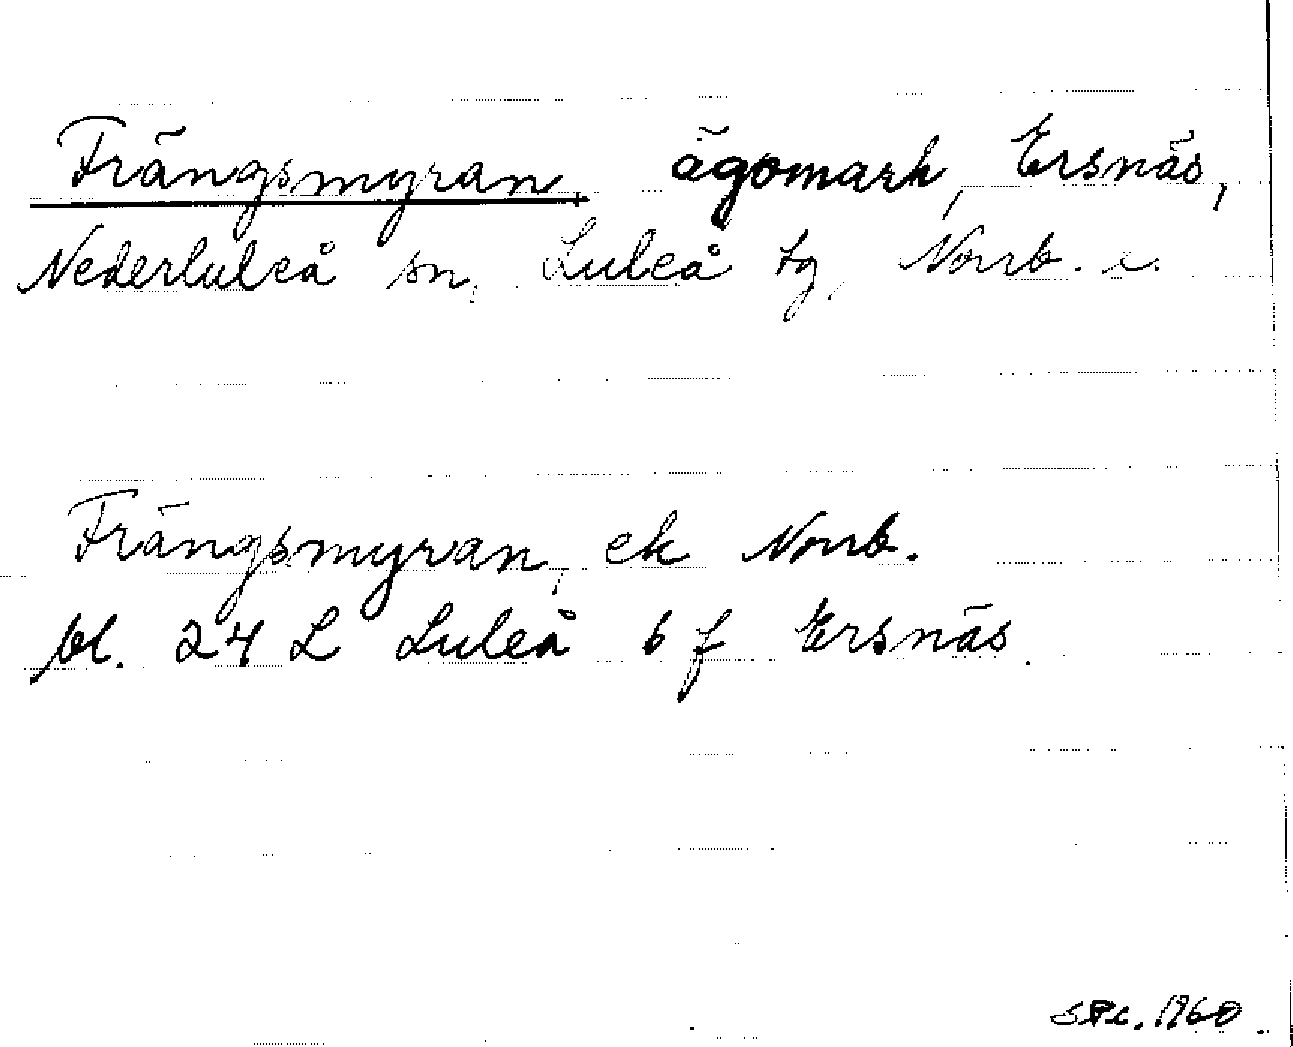 Frängsmyran, ägomark, Ersnäs,
Nederluleå sn, Luleå tg, Norrb. l.
Frängsmyran, ek Norrb.
bl. 24 L Luleå 6 f Ersnäs.
1960.